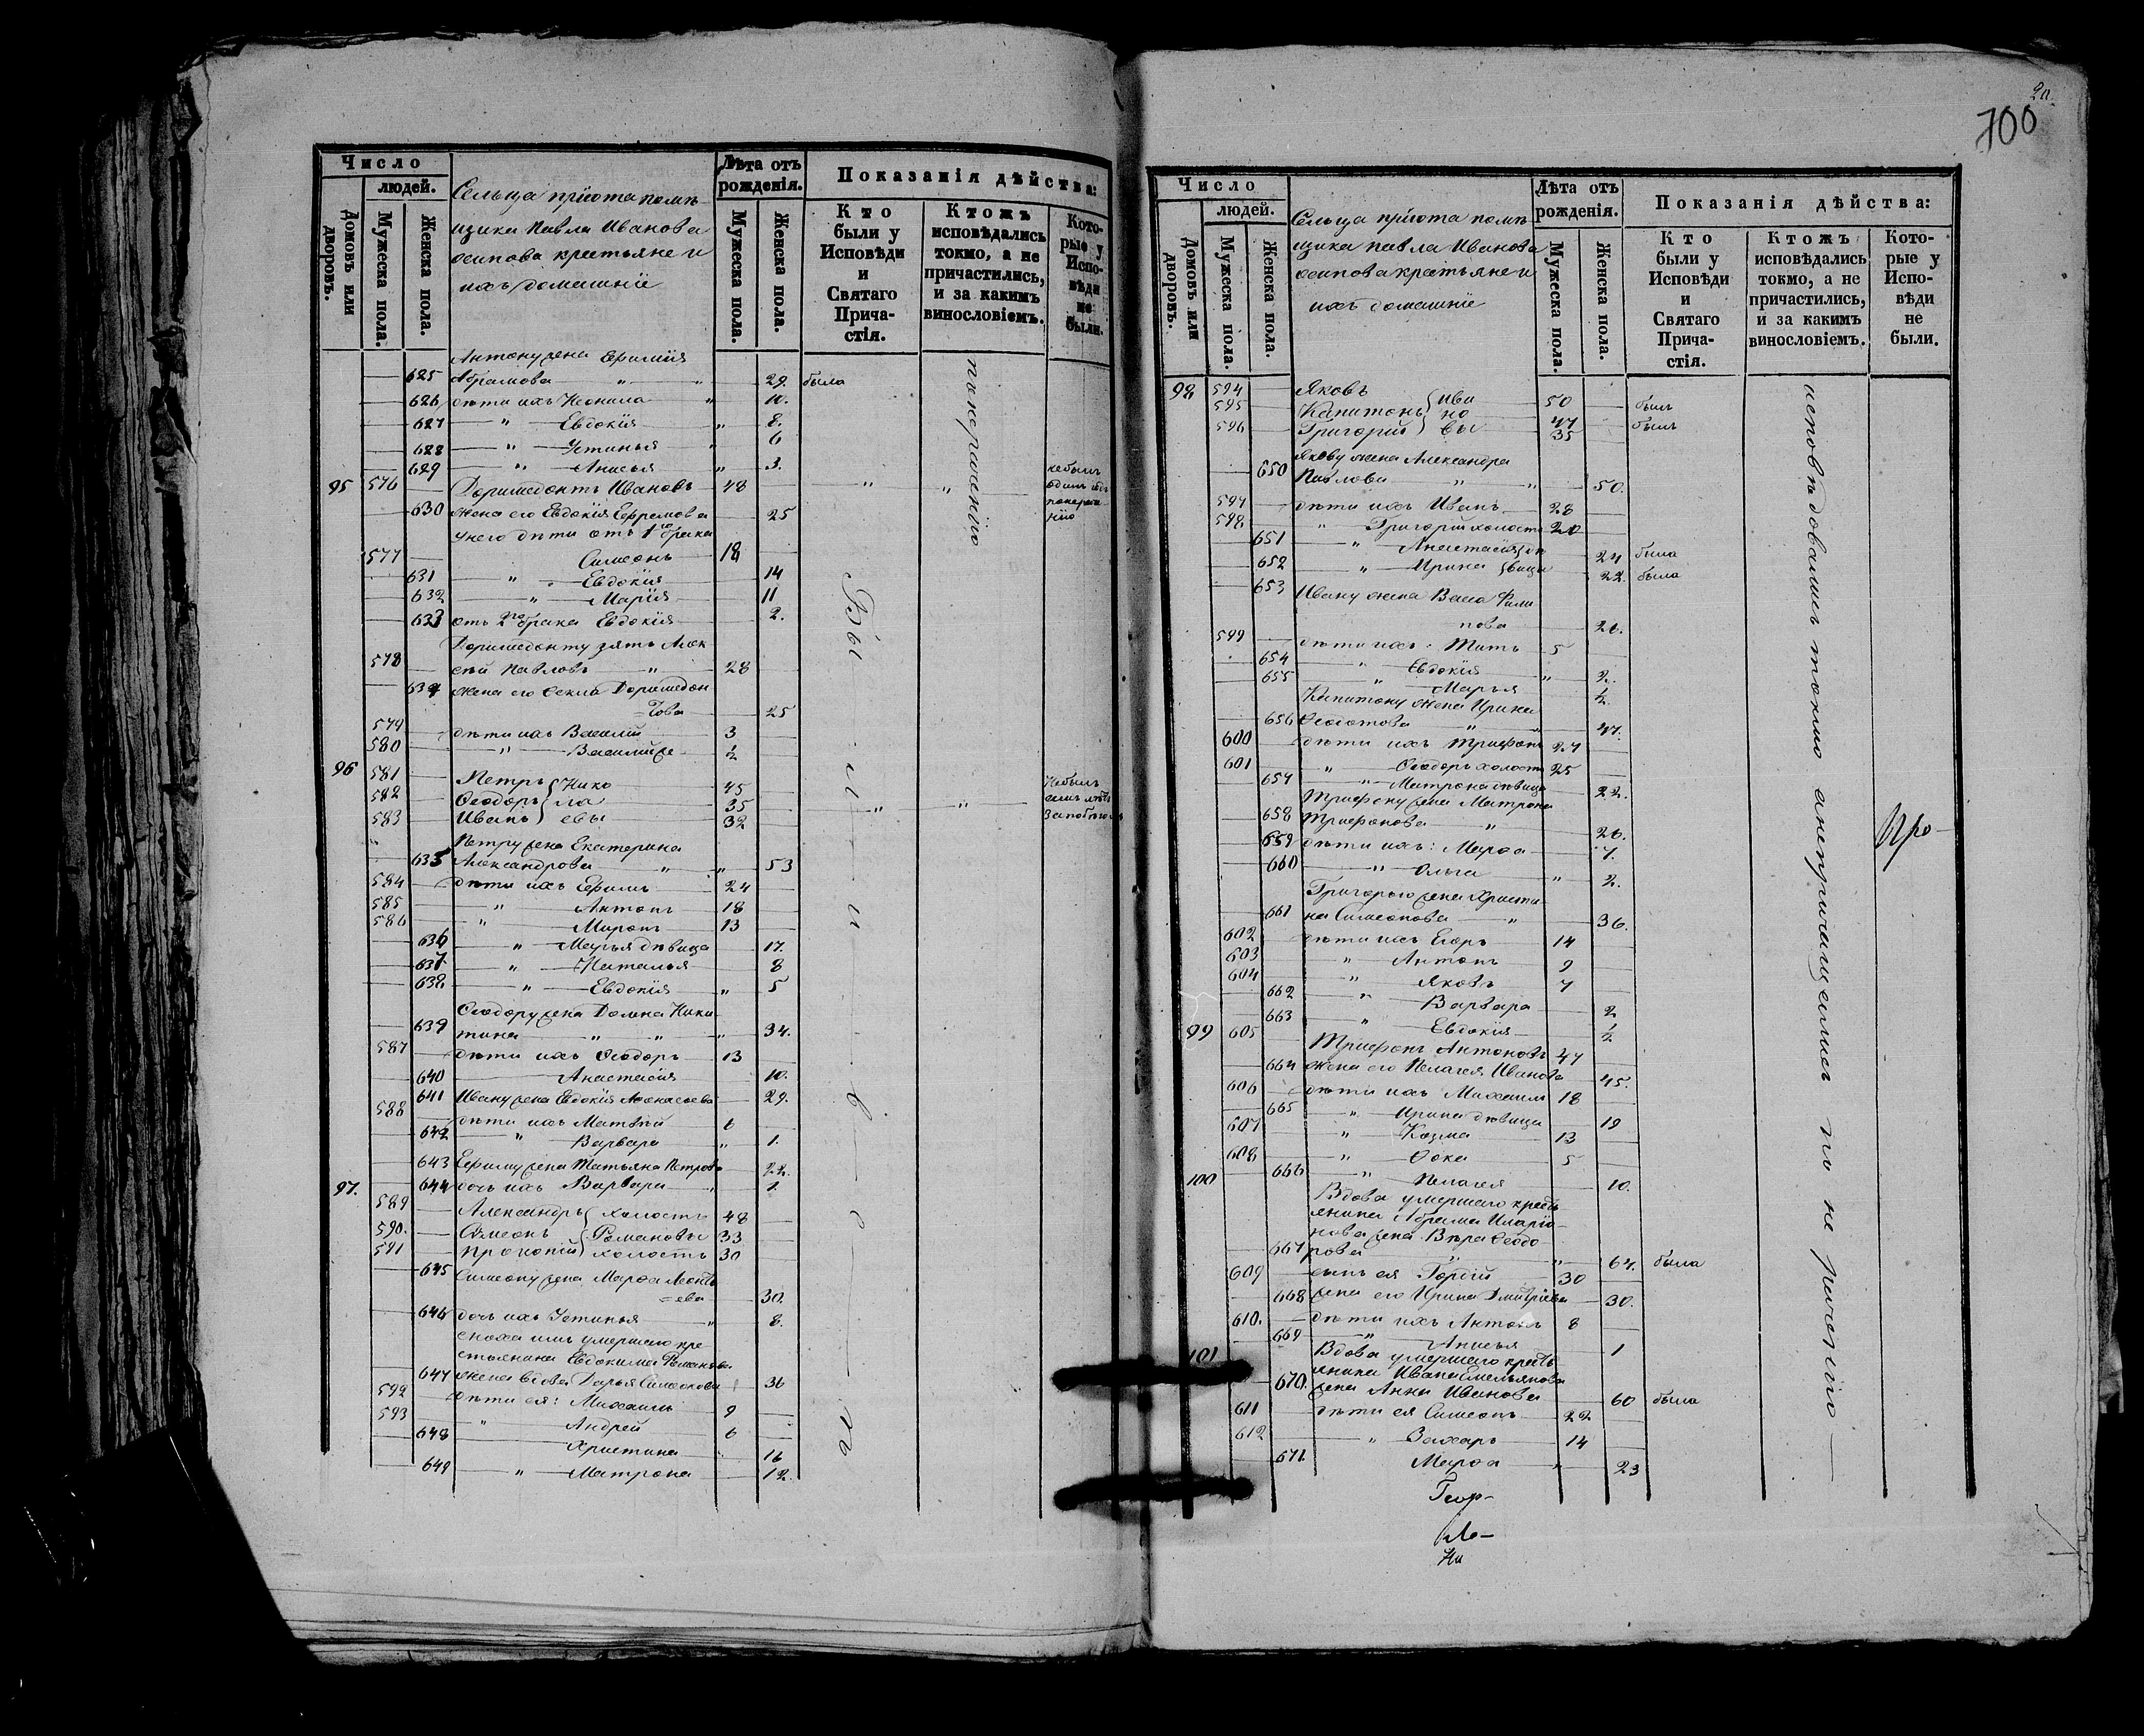 Число
людей.
Домовъ или дворовъ.
Мужеска пола.
Женска пола.
Сельца Прiюта помѣ-
щика Павла Иванова
Осипова крестьяне и
ихъ домашнiе
Лѣта отъ рожденiя.
Мужеска пола.
Женска пола.
Показанiя дѣйства:
Кто были у Исповѣди и Святаго Прича-стiя.
Ктожъ исповѣдались токмо, а не причастились, и за какимъ винословiемъ.
Кото-рые у Испо-вѣди не были.
Антону жена Ефимiя
625 Абрамова " " 29. была
626 дѣти ихъ Неонила " 10.
627 " Евдокiя " 8.
628 " Устинья " 6
629 " Анисья " 3.
95 576 Доримедонтъ Ивановъ 48 " "
630 жена его Евдокiя Ефремова 25
у него дѣти отъ 1го брака
577 Симеонъ 18
631 " Евдокiя 14
632 " Марiя 11
633 отъ 2го брака Евдокiя 2.
Доримедонту зять Алек
578 сѣй Павловъ " 28
634 жена его Фекла Доримедон
=това 25
579 дѣти ихъ Василiй 3
580 " Василiй же ½
96 581 Петръ Нико 45
582 Ѳеодоръ ла 35 " "
583 Иванъ евы 32
Петру жена Екатерина
635 Александрова " " 53
584 дѣти ихъ Ефимъ 24
585 " Антонъ 18
586 " Миронъ 13
636 " Марья дѣвица 17.
637 " Наталья 8
638 " Евдокiя " 5
Ѳеодору жена Домна Ники
639 тина " " " 34.
587 дѣти ихъ Ѳеодоръ 13
640 Анастасiя 10.
641 Ивану жена Евдокiя Аѳанасьева 29.
588 дѣти ихъ Матвѣй 6
642 " Варвара " 1.
643 Ефиму жена Татьяна Петрова 22.
97. 644 дочь ихъ Варвара " 1.
589 Александръ холостъ 48
590. Симеонъ Романовы 33
591 Прокопiй холостъ 30
645 Симеону жена Марѳа Леонть
=ева 30.
646 дочь ихъ Устинья " 8.
сноха имъ умершаго кре
стьянина Евдокима Романова
647 жена вдова Дарья Симеонова 36
592 дѣти ея: Михаилъ 9
593 " Андрей 6
648 Христина 16
649 " Матрона 12.
не былъ
по нерадѣнiю
Не былъ
700
Число
людей.
Домовъ или дворовъ.
Мужеска пола.
Женска пола.
Сельца Прiюта помѣ
щика Павла Иванова
Осипова крестьяне и
ихъ домашнiе
Лѣта отъ рожденiя.
Мужеска пола.
Женска пола.
Показанiя дѣйства:
Кто были у Исповѣди и Святаго Прича-стiя.
Ктожъ исповѣдались токмо, а не причастились, и за какимъ винословiемъ.
Кото-рые у Испо-вѣди не были.
98 594 Яковъ Ива 50 былъ
595 Капитонъ но 47 былъ
596 Григорiй вы 35
Якову жена Александра
650 Павлова " " 50.
597 дѣти ихъ Иванъ 28
598 " Григорiй холостъ 20
651 " Анастасiя дѣ 24 была
652 " Ирина вицы 22. была
653 Ивану жена Васса Фили
пова 26.
599 дѣти ихъ: Титъ 5
654 " Евдокiя " 2.
655 " Марья ½
Капитону жена Ирина
656 Ѳедотова " " 47.
600 дѣти ихъ Трифонъ 27
601 " Ѳеодоръ холостъ 25
657 " Матрона дѣвица 22.
Трифону жена Матрона
658 Трифонова " 26.
659 дѣти ихъ: Марѳа 7.
660 " Ольга " 2.
Григорью жена Христи
661 на Симеонова " 36.
602 дѣти ихъ Егоръ 14
603 " Антонъ 9
604 " Яковъ 7
662 " Варвара 2
663 " Евдокiя ½
99 605 Трифонъ Антоновъ 47
664 жена его Пелагея Иванова 45.
606 дѣти ихъ Михаилъ 18
665 " Ирина дѣвица 19
607 " Козма 13
608 " Фока 5
666 " Пелагея 10.
100 Вдова умершаго кресть
янина Абрама Иларiо-
нова жена Вѣра Ѳеодо-
667 рова " " 64. была
609 сынъ ея Гордiй 30
668 жена его Ирина Дмитрiева 30.
610. дѣти ихъ Антонъ 8
669 " Анисья 1
101 Вдова умершаго кресть
янина Ивана Емельянова
670. жена Анна Иванова 60 была
611 дѣти ея Симеонъ 22
612 " Захаръ 14
671. Марѳа " 23
исповѣдовались токмо а непричащались по не раченiю
Про-